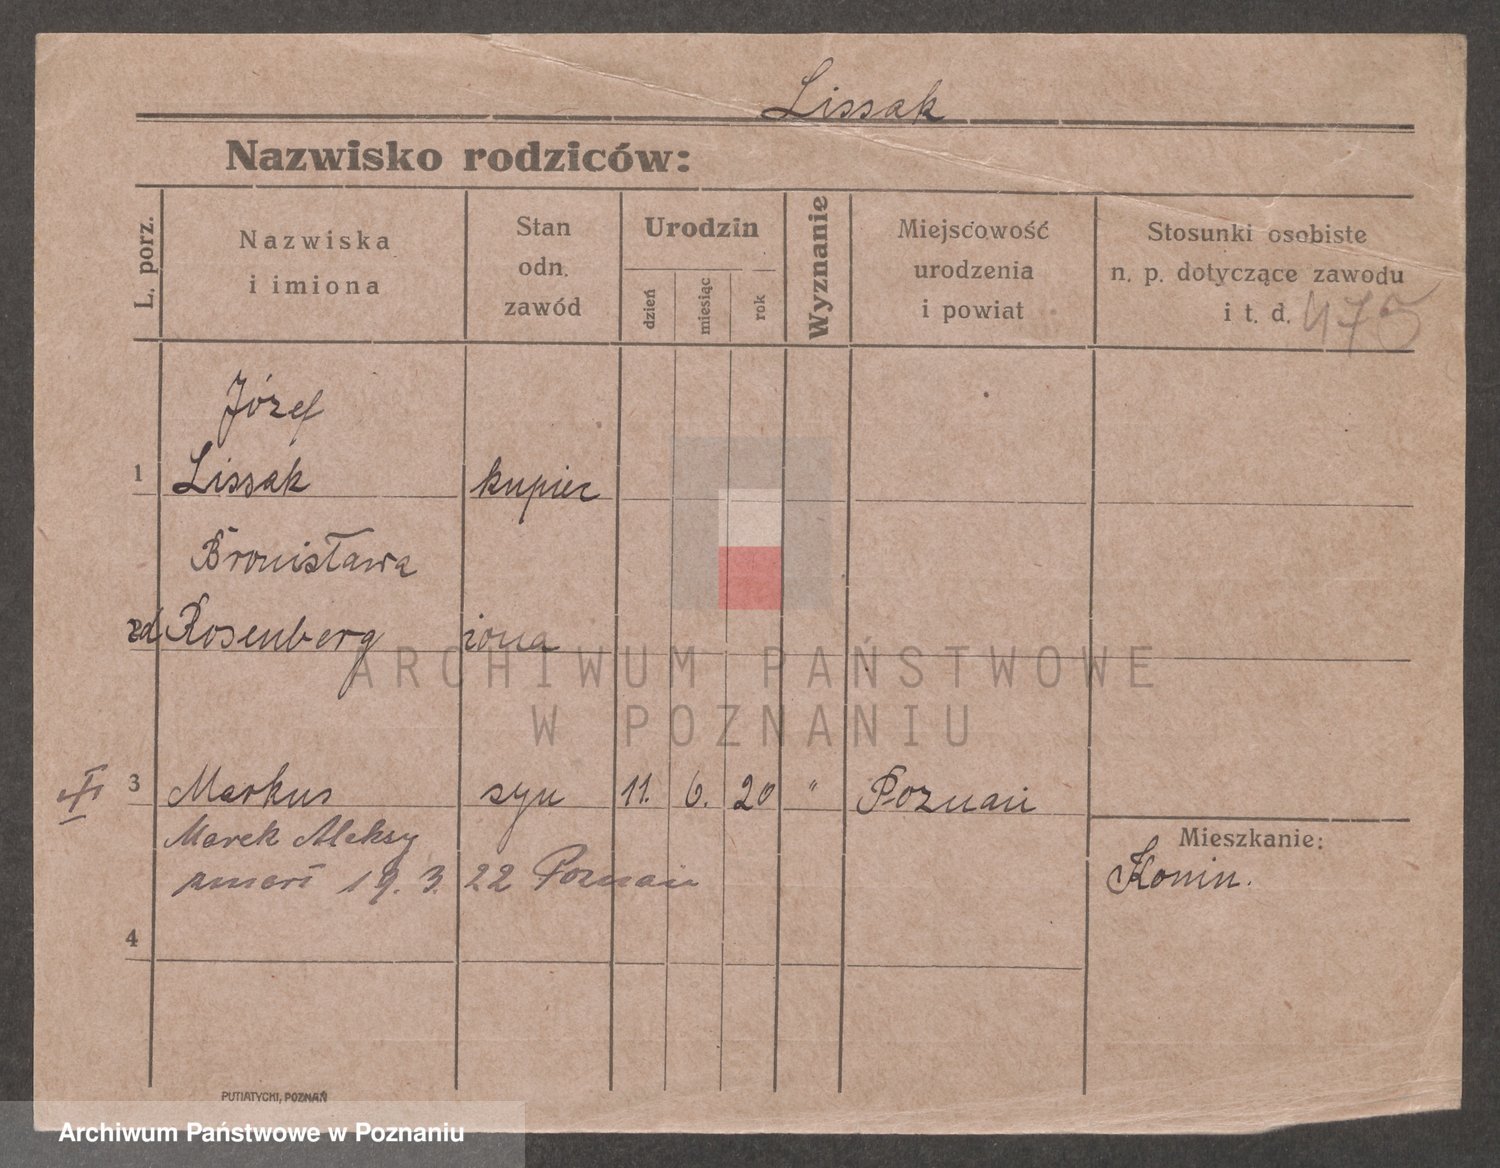 Lissak
Nazwisko rodziców:
L. porz.
Nazwiska
i imiona
Stan
odn.
zawód
Urodzin
dzień
miesiąc
rok
Wyznanie
Miejscowość
urodzenia
i powiat
Stosunki osobiste
n. p. dotyczące zawodu
i t. d. 475
Józef
1 Lissak kupiec
Bronisława
zd Rosenberg żona
3 Markus syn 11. 6. 20 " Poznań
Marek Aleksy
zmarł 19. 3. 22 Poznań
Mieszkanie:
Konin.
4
PUTIATYCKI, POZNAŃ
ARCHIWUM PAŃSTWOWE
W POZNANIU
Archiwum Państwowe w Poznaniu